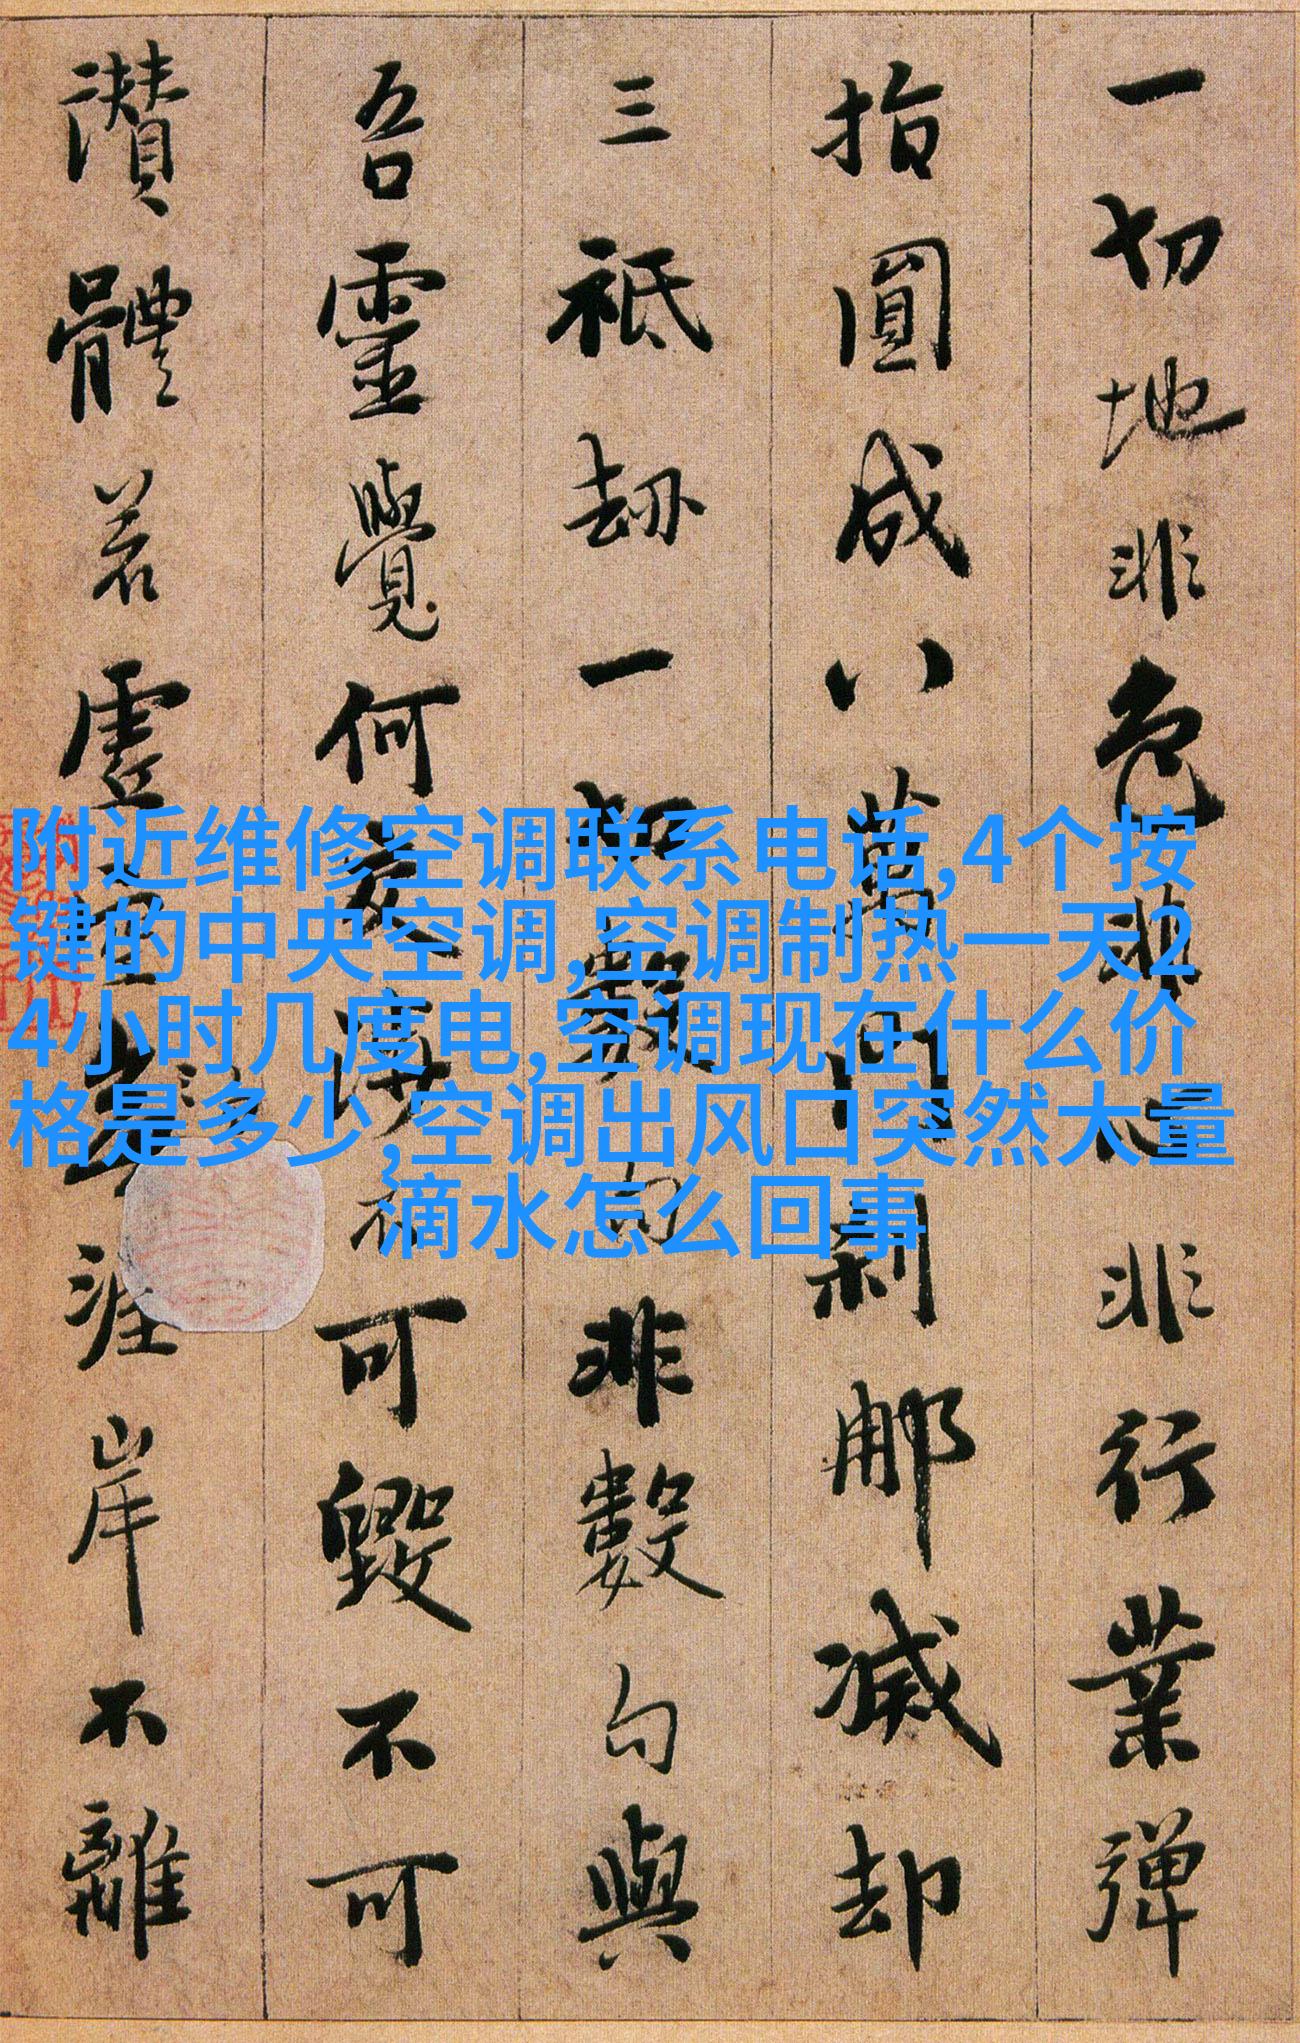 一切地非色非心非行業彈
指圓成八萬門刹那滅却
三祇劫一切數句非數句與
吾靈覺何交涉不可毀不可
讃體若虛空涯岸不離
附近维修空调联系电话,4个按
键的中央空调,空调制热一天2
4小时几度电,空调现在什么价
格是多少,空调出风口突然大量
滴水怎么回事